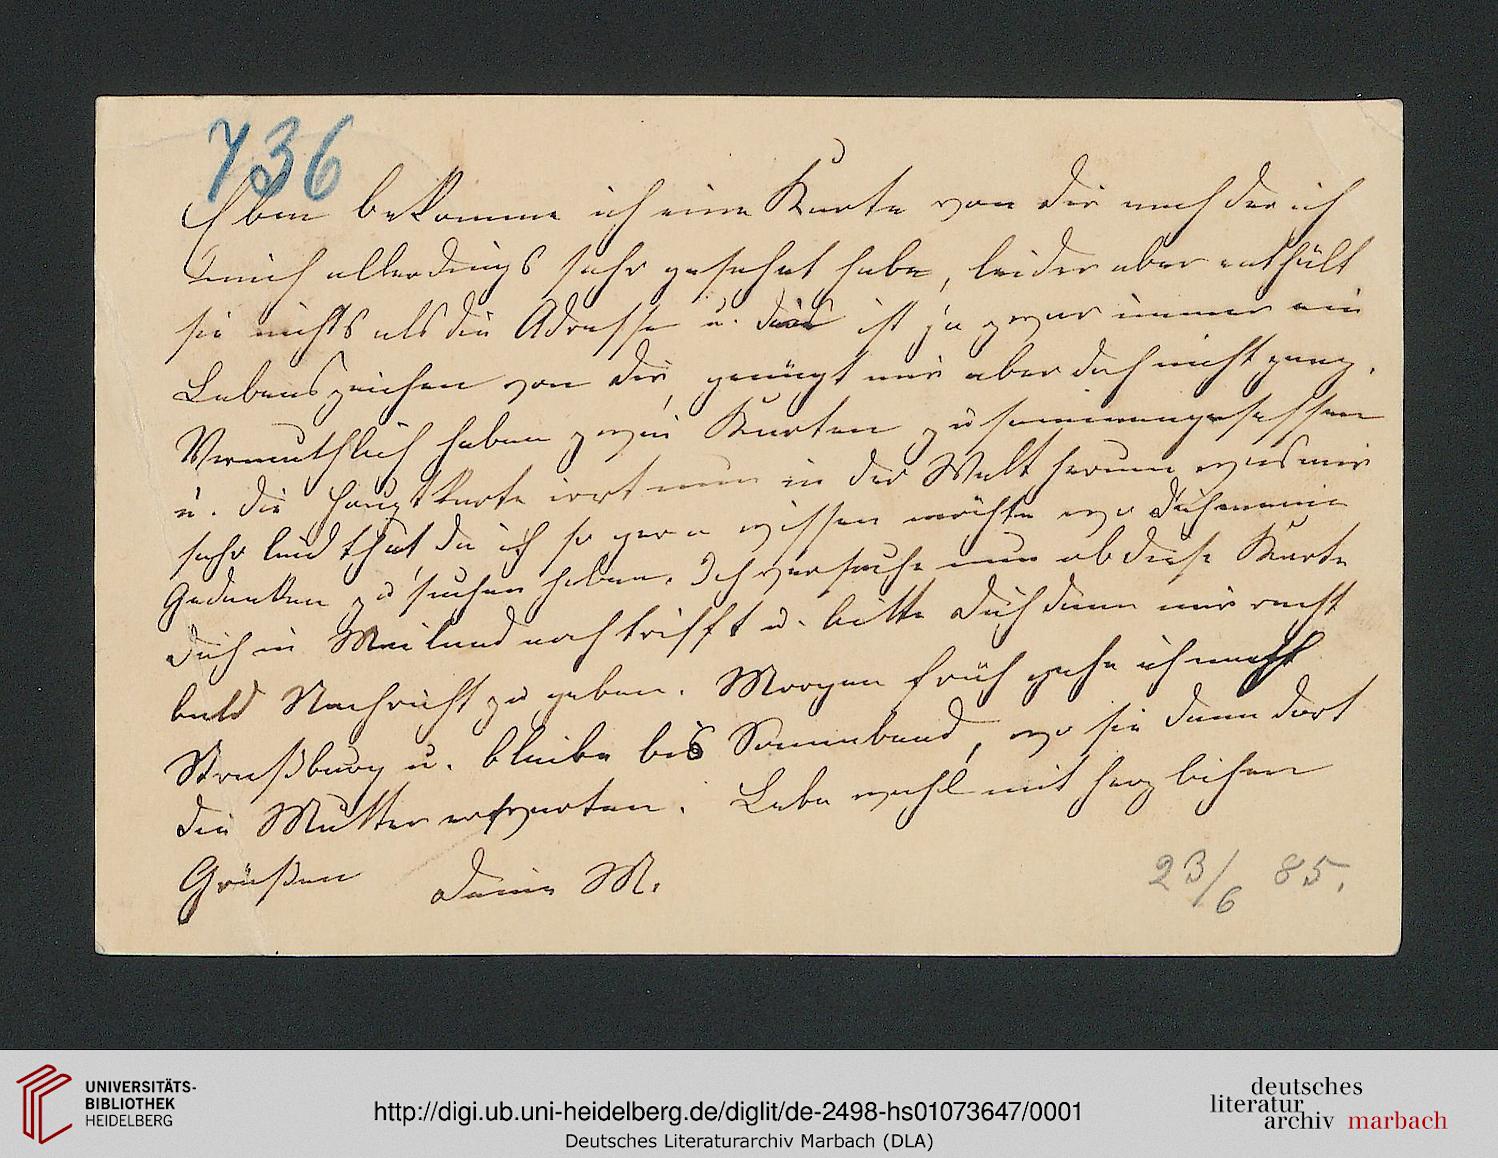 736
Eben bekomme ich eine Karte von dir nach der ich
mich allerdings sehr gesehnt habe, leider aber enthält
sie nichts als die Adresse u. dies ist ja zwar immer ein
Lebenszeichen von dir, genügt mir aber doch nicht ganz.
Vermuthlich haben zwei Karten zusammengesessen
u. die Hauptkarte irrt nun in der Welt herum was mir
sehr leid thut, da ich so gern wissen möchte wo dich meine
Gedanken zu suchen haben. Ich versuche nun ob diese Karte
dich in Mailand noch trifft u. bitte dich dann mir recht
bald Nachricht zu geben. Morgen früh gehe ich nach
Straßburg u. bleibe bis Sonnabend, wo sie dann dort
die Mutter erwarten. Lebe wohl mit herzlichen
Grüßen deine M.
23/6 85.
UNIVERSITÄTS-
BIBLIOTHEK
HEIDELBERG
http://digi.ub.uni-heidelberg.de/diglit/de-2498-hs01073647/0001
Deutsches Literaturarchiv Marbach (DLA)
deutsches
literatur
archiv marbach